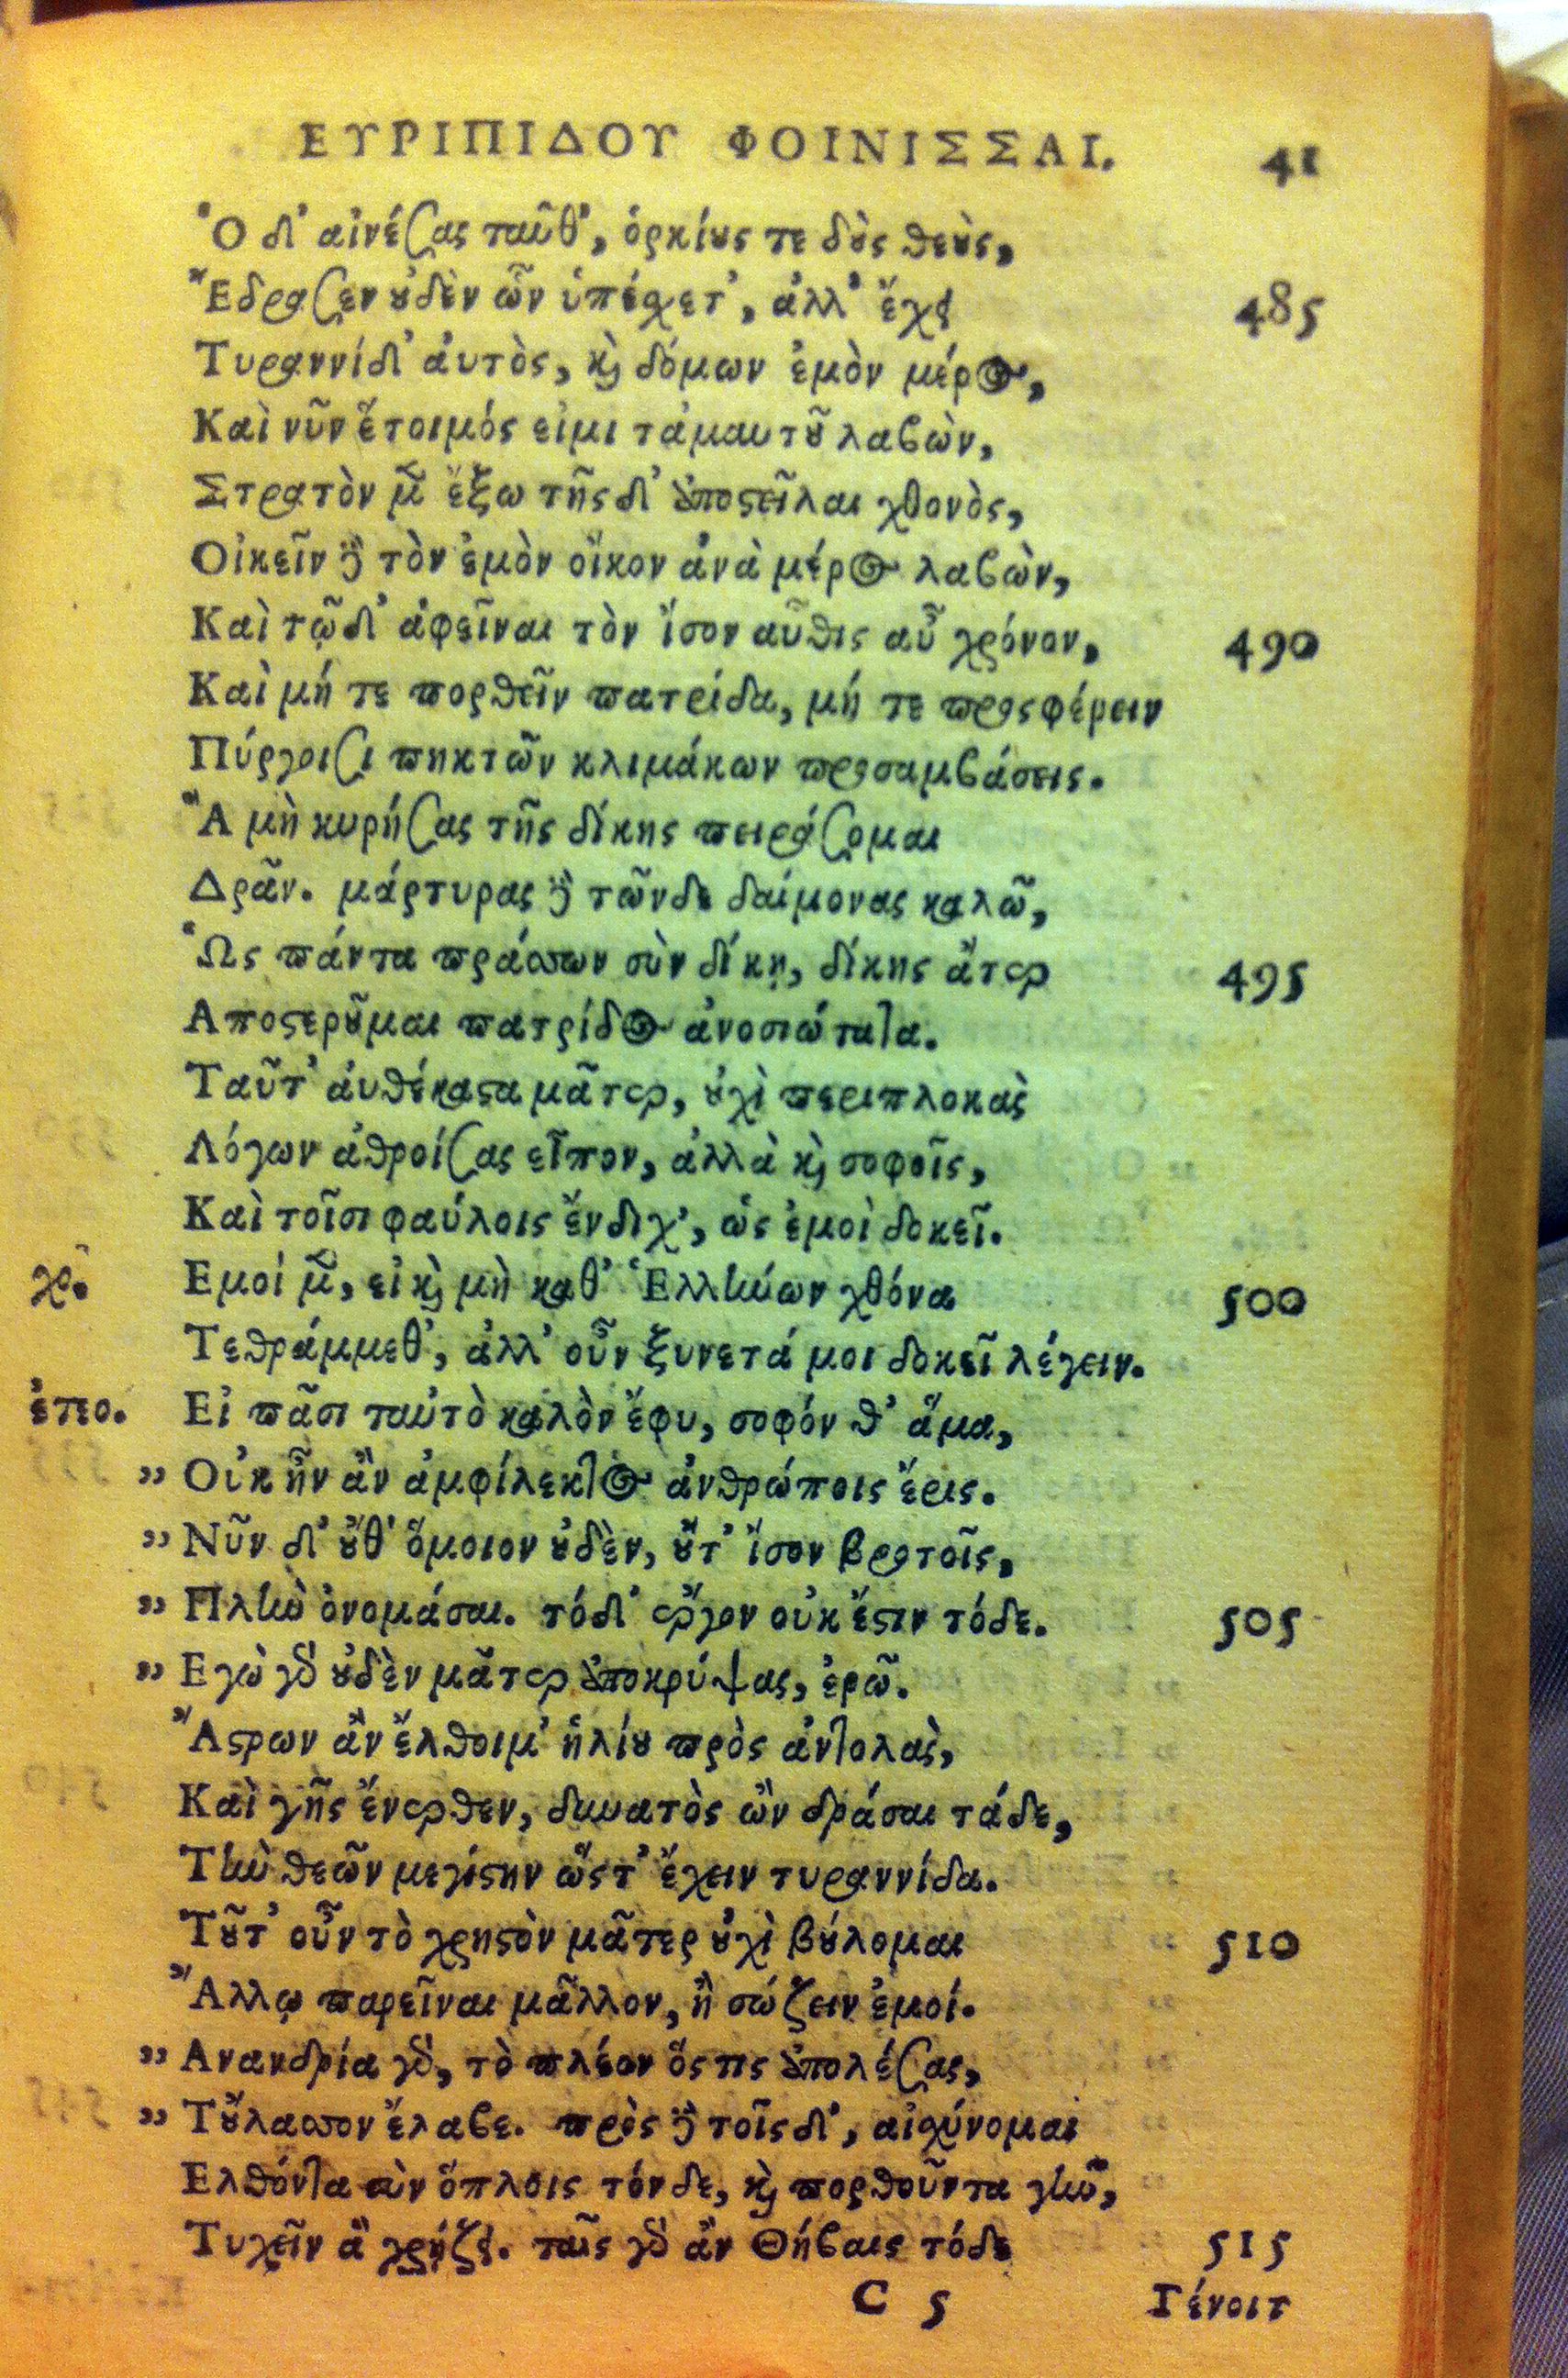 ΕΥΡΙΠΙΔΟΥ ΦΟΙΝΙΣΣΑΙ. 41
Ὁ δ' αἰνέσας ταῦθ', ὁρκίους τε δοὺς θεοὺς,
Ἔδρασεν οὐδὲν ὧν ὑπέσχετ', ἀλλ' ἔχει 485
Τυραννίδ' ἀυτὸς, καὶ δόμων ἐμὸν μέρος,
Καὶ νῦν ἕτοιμός εἰμι τἀμαυτοῦ λαβὼν,
Στρατὸν μὲν ἔξω τῆς δ' ἀποστεῖλαι χθονὸς,
Οἰκεῖν δὲ τὸν ἐμὸν οἶκον ἀνὰ μέρος λαβὼν,
Καὶ τῷδ' ἀφεῖναι τὸν ἴσον αὖθις αὖ χρόνον, 490
Καὶ μή τε πορθεῖν πατρίδα, μή τε προςφέρειν
Πύργοισι πηκτῶν κλιμάκων προσαμβάσεις.
Ἃ μὴ κυρήσας τῆς δίκης πειράσομαι
Δρᾶν. μάρτυρας δὲ τῶνδε δαίμονας καλῶ,
Ὡς πάντα πράσσων σὺν δίκῃ, δίκης ἄτερ 495
Αποστεροῦμαι πατρίδος ἀνοσιώτατα.
Ταῦτ' ἀυθέκαστα μᾶτερ, οὐχὶ περιπλοκὰς
Λόγων ἀθροίσας εἶπον, ἀλλὰ καὶ σοφοῖς,
Καὶ τοῖσι φαύλοις ἔνδιχ', ὡς ἐμοὶ δοκεῖ.
χο. Εμοί μὲν, εἰ καὶ μὴ καθ' Ἑλλήνων χθόνα 500
Τεθράμμεθ', ἀλλ' οὖν ξυνετά μοι δοκεῖ λέγειν.
ἐτεο. Εἰ πᾶσι ταὐτὸ καλὸν ἔφυ, σοφόν θ' ἅμα,
” Οὐκ ἦν ἂν ἀμφίλεκτος ἀνθρώποις ἔρις.
” Νῦν δ' οὔθ' ὅμοιον οὐδὲν, οὔτ' ἴσον βροτοῖς,
” Πλὴν ὀνομάσαι. τόδ' ἔργον οὐκ ἔστιν τόδε. 505
” Εγὼ γὰρ οὐδὲν μᾶτερ ἀποκρύψας, ἐρῶ.
Ἄστρων ἂν ἔλθοιμ' ἡλίου πρὸς ἀντολὰς,
Καὶ γῆς ἔνερθεν, δυνατὸς ὢν δράσαι τάδε,
Τὴν θεῶν μεγίστην ὥςτ' ἔχειν τυραννίδα.
Τοῦτ' οὖν τὸ χρηστὸν μᾶτερ οὐχὶ βούλομαι 510
Ἄλλῳ παρεῖναι μᾶλλον, ἢ σώζειν ἐμοί.
” Ανανδρία γὰρ, τὸ πλέον ὅς τις ἀπολέσας,
” Τοὔλασσον ἔλαβε. πρὸς δὲ τοῖς δ', αἰσχύνομαι
Ελθόντα σὺν ὅπλοις τόνδε, καὶ πορθοῦντα γῆν,
Τυχεῖν ἃ χρῄζει. ταῖς γὰρ ἂν Θήβαις τόδε 515
C 5 Γένοιτ